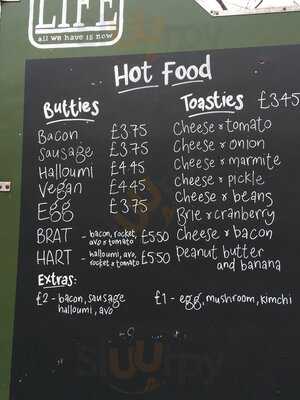 LIFE
all we have is now
Hot Food
Butties
Bacon £3.75
Sausage £3.75
Halloumi £4.45
Vegan £4.45
Egg £3.75
BRAT - bacon, rocket, avo & tomato £5.50
HART - halloumi, avo, rocket & tomato £5.50
Toasties £3.45
Cheese & tomato
Cheese & onion
Cheese & marmite
Cheese & pickle
Cheese & beans
Brie & cranberry
Cheese & bacon
Peanut butter
and banana
Extras:
£2 - bacon, sausage
halloumi, avo
£1 - egg, mushroom, kimchi